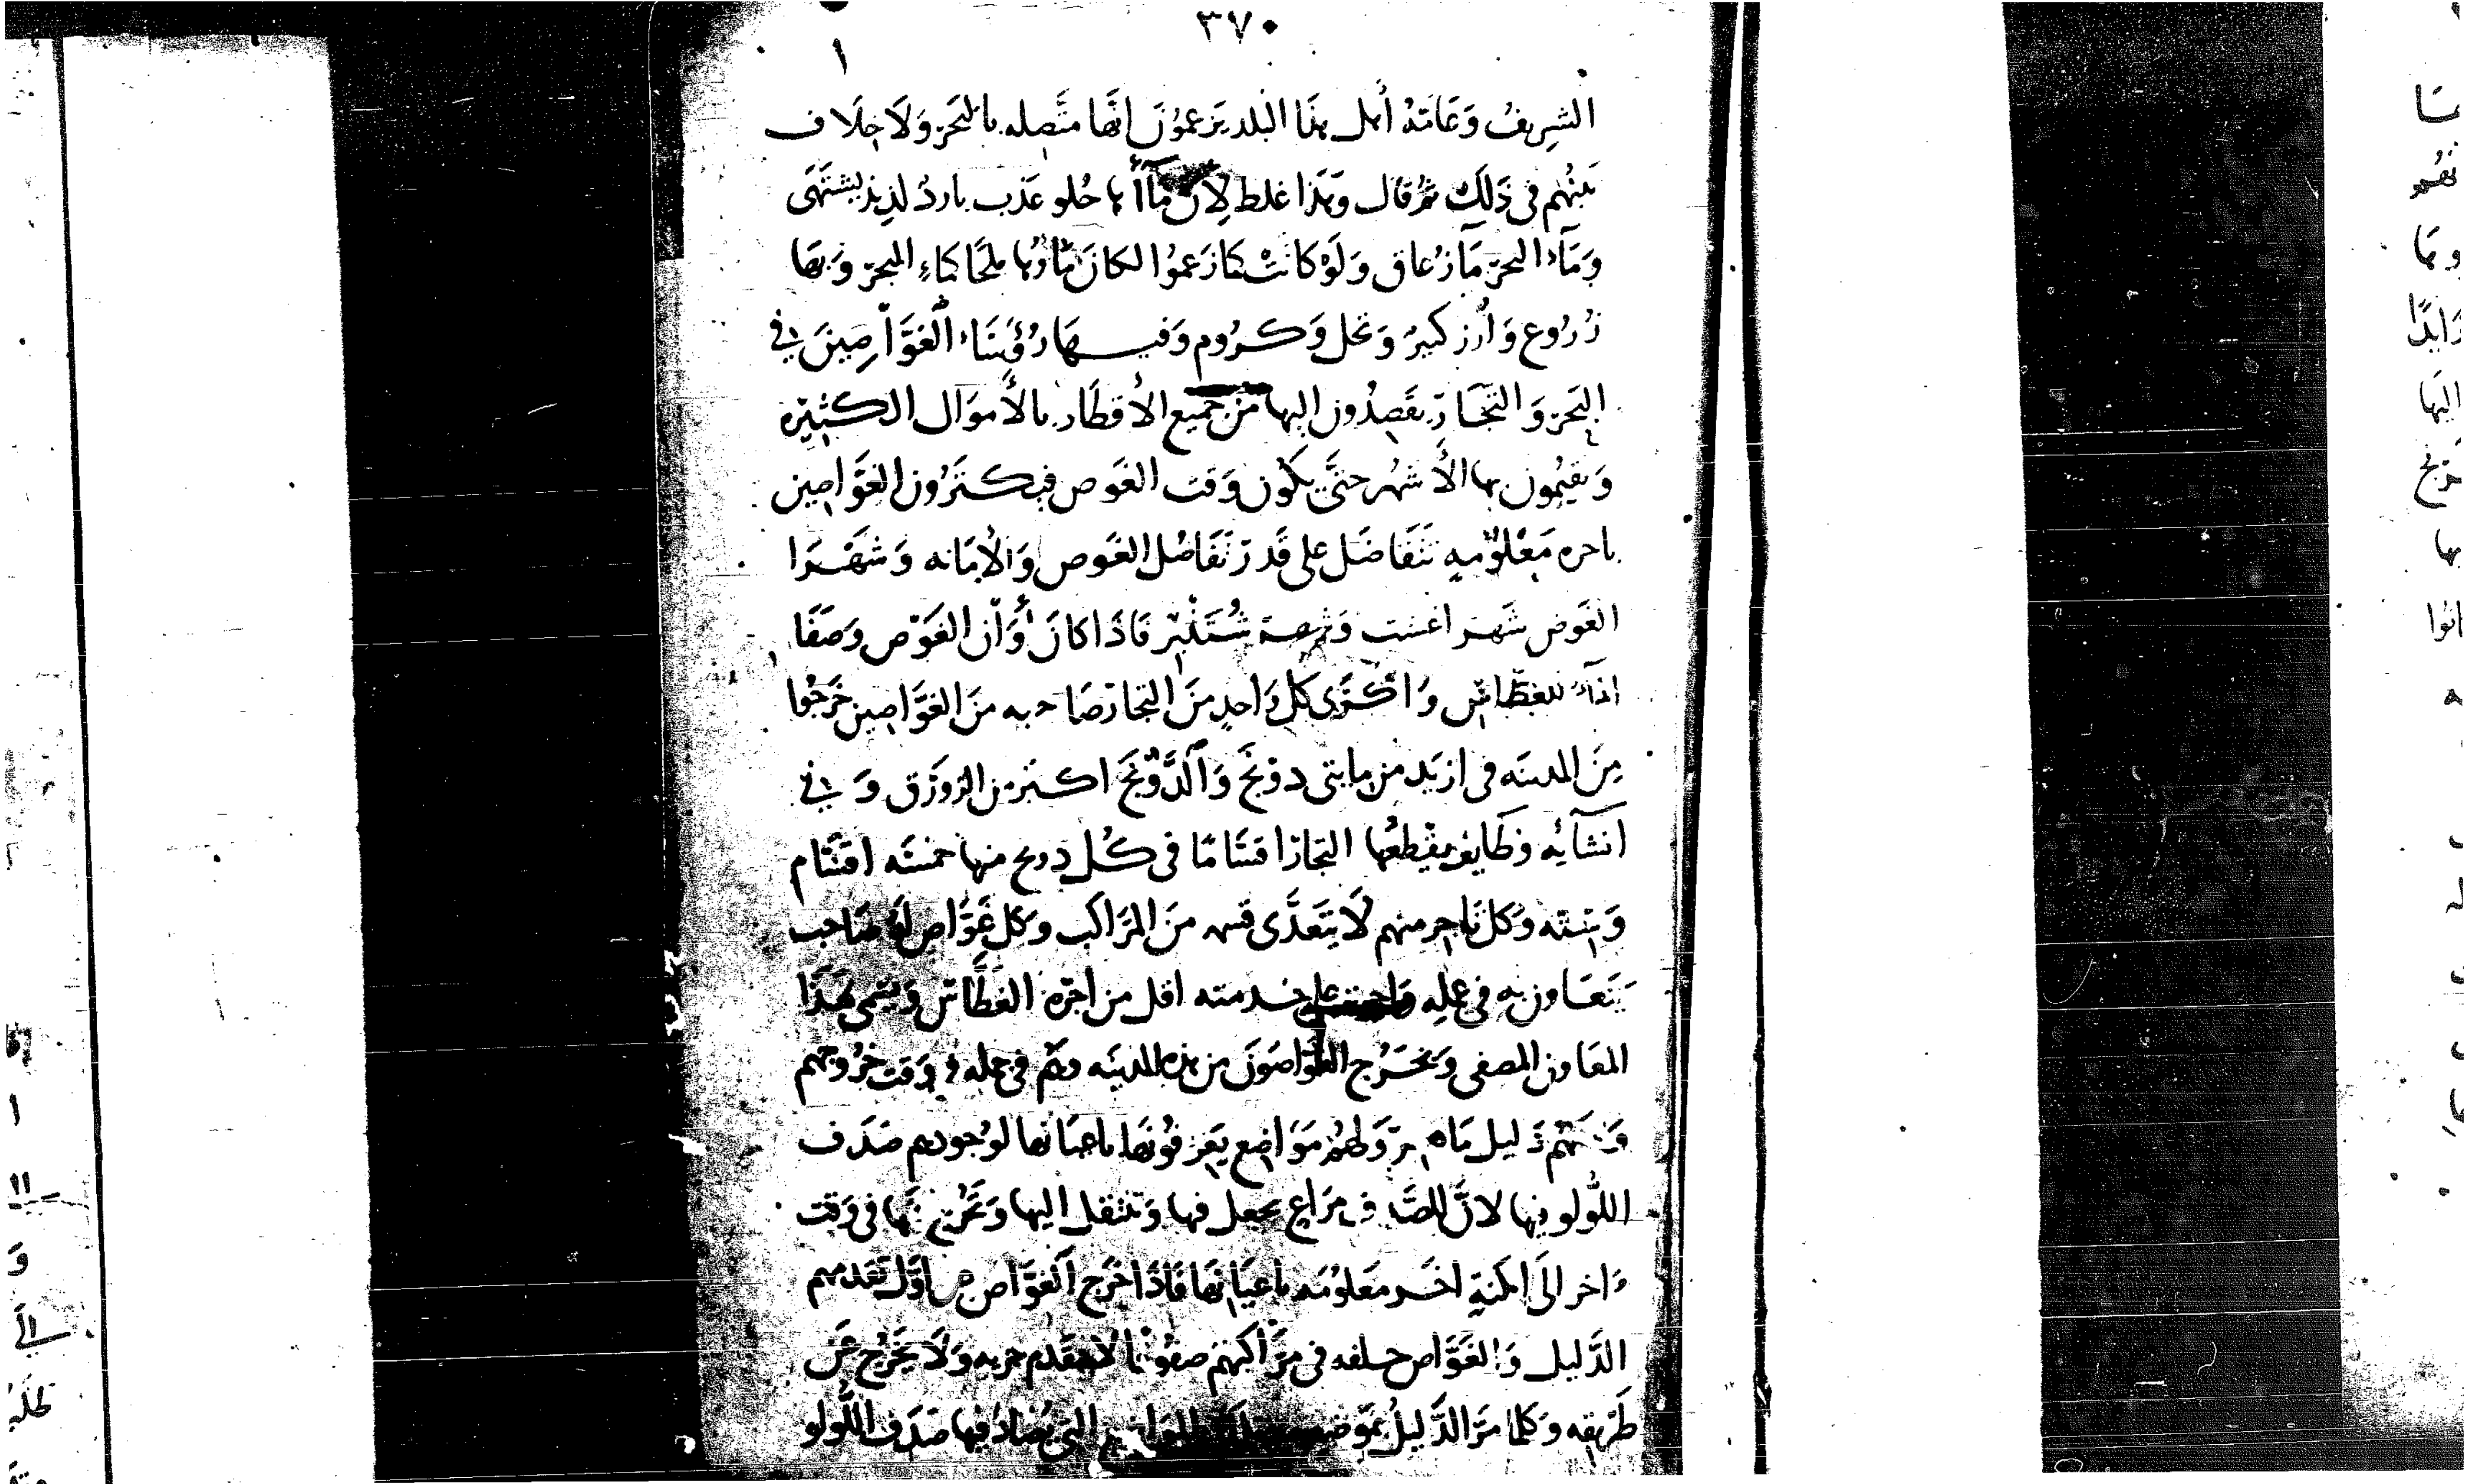 ٣٧٠
الشريف وَعَامَّة أهل هذا البلد يَزعمُونَ انَّها متَّصله بالبحَر وَلَا خِلَاف
بَينهُم في ذَلِكَ ثم قال وَهَذا غلط لِأن مَآأها حُلو عَذب باردُ لذيذ يشتَهَى
وَمَآء البحَر مَآ زُعاق وَلَوْ كانَتْ كمَا زَعموُا لكانَ مَاؤها ملحًا كمَاءِ البحر وَبهَا
زُرُوع وَأرز كبيرُ وَنخل وَكرُوم وَفيهَا رُؤسَاء الغَوَّاصِينَ في
البَحَر وَالتجَار يقصِدُون اليها من جَميع الأقطَار بالأموَال الكثيرَه
وَيقيمُون بها الأشهُر حتَّى يكُون وَقت الغَوص فيكتَرُون الغَوَّاصين
باجره مَعْلوُمه تَتَفَاضَل على قَدر تَفَاضُل الغَوص وَالأمَانه وَشهَرا
الغَوص شَهر اغشت وَشهر شُتَنْبِر فَاذَا كانَ أوَان الغَوْص وَصَفَا
المآء للغطَّاس وَاكتَرى كل وَاحدٍ منَ التجار صَاحبه منَ الغَوَّاصين خَرَجُوا
مِنَ المدينَه في ازيَد من مايتى دونج وَالدَّوْنج اكبر من الزورَق وَفي
انشَآئِه وَظَايف يقطعُها التجَار اقسَامًا في كُل دونج منها خمسَه اقسَام
وَستَه وَكل تَاجر منهم لَا يتَعَدَّى قسمه منَ المرَاكب وَكل غَوَّاص لَهُ صَاحب
يَتَعَاون به في عمله وَاجرته على خدمته اقل من اجرَة الغطَّاس وَيسَمى هَذَا
المعَاون المصفى وَيخَرُج الغوَّاصُونَ من هذه المدينَه وهم في جمله وَوَقت خرُوجهم
وَمَعَهُم دَليل مَاهِر وَلهُم مَوَاضِع يَعرفُونَها باعيَانها لوُجود صَدَف
اللُولو فيها لانَّ للصَّدف مرَاعٍ يجول فيها وَتنتقل اليها وَتَخرج عنها في وَقت
ءَاخر الى امكنةٍ اخَر معَلوُمَه باعيَانهَا فَاذَا خَرَج الغوَّاص عن اوَّال تقدمهم
الدَّليل وَالغَوَّاص خلفه في مرَاكبهم صفُوفًا لَا يتقدم جريه وَلَا يَخَرُج عَن
طَريقه وَكلما مَرَّ الدَّليلُ بموضع من تلك الموَاضع التي يُصَاد فيها صَدَف اللُّولو